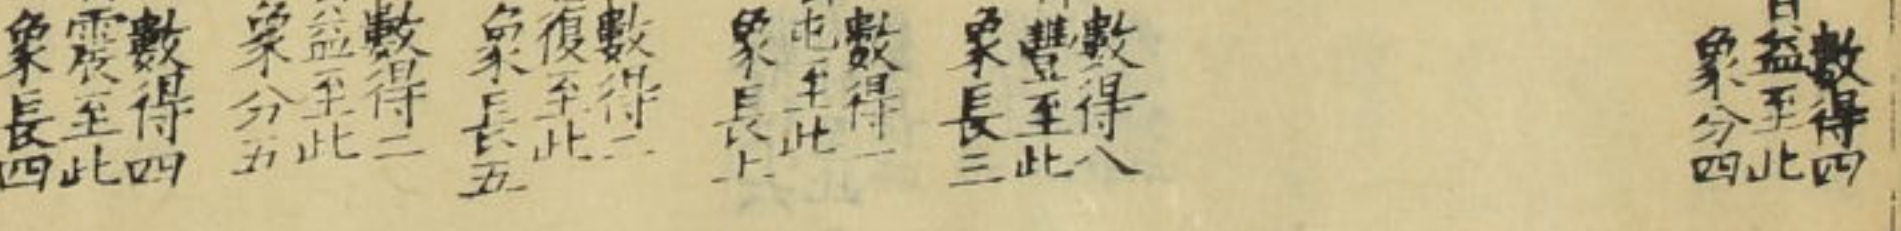 數得四
益至此
象分四
數得八
豐至此
象長三
數得一
屯至此
象長上
數得二
復至此
象長五
數得二
益至此
象分五
數得四
震至此
象長四